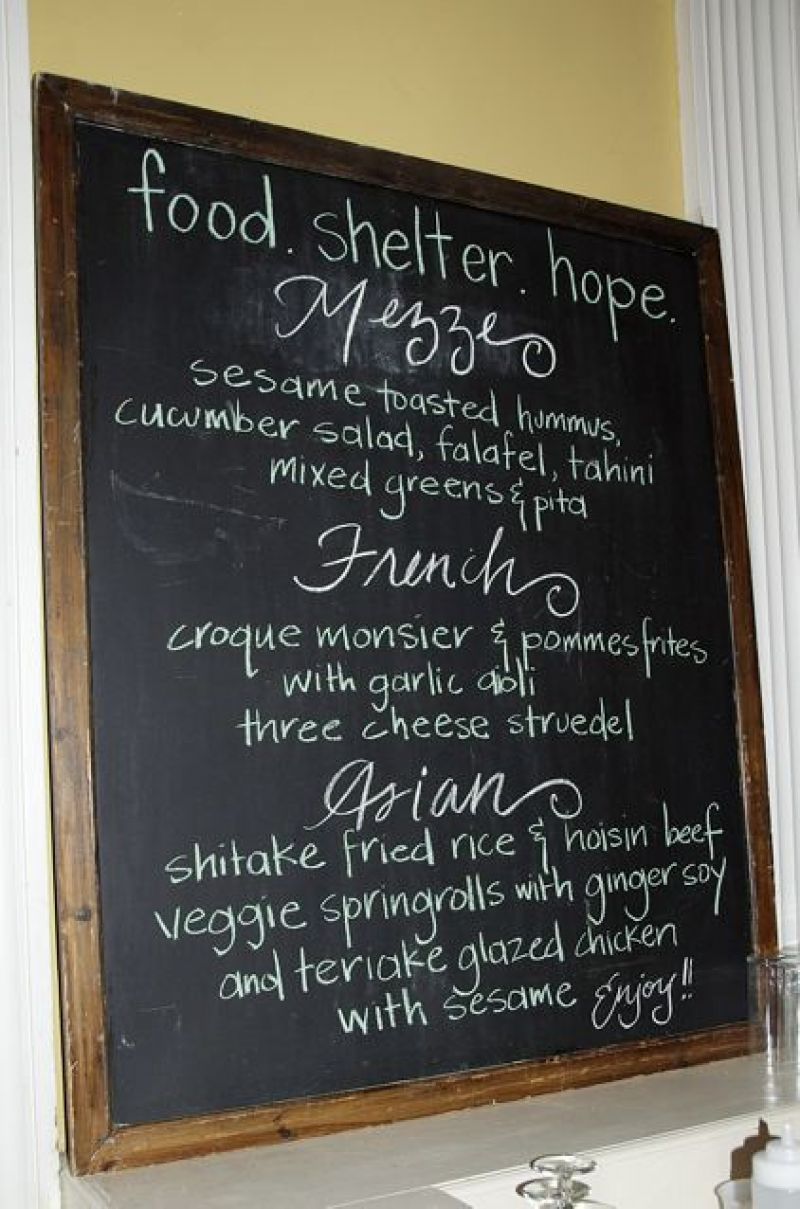 food. shelter. hope.
Mezze
sesame toasted hummus,
cucumber salad, falafel, tahini
mixed greens & pita
French
croque monsier & pommes frites
with garlic aioli
three cheese struedel
Asian
shitake fried rice & hoisin beef
veggie springrolls with ginger soy
and teriake glazed chicken
with sesame Enjoy!!